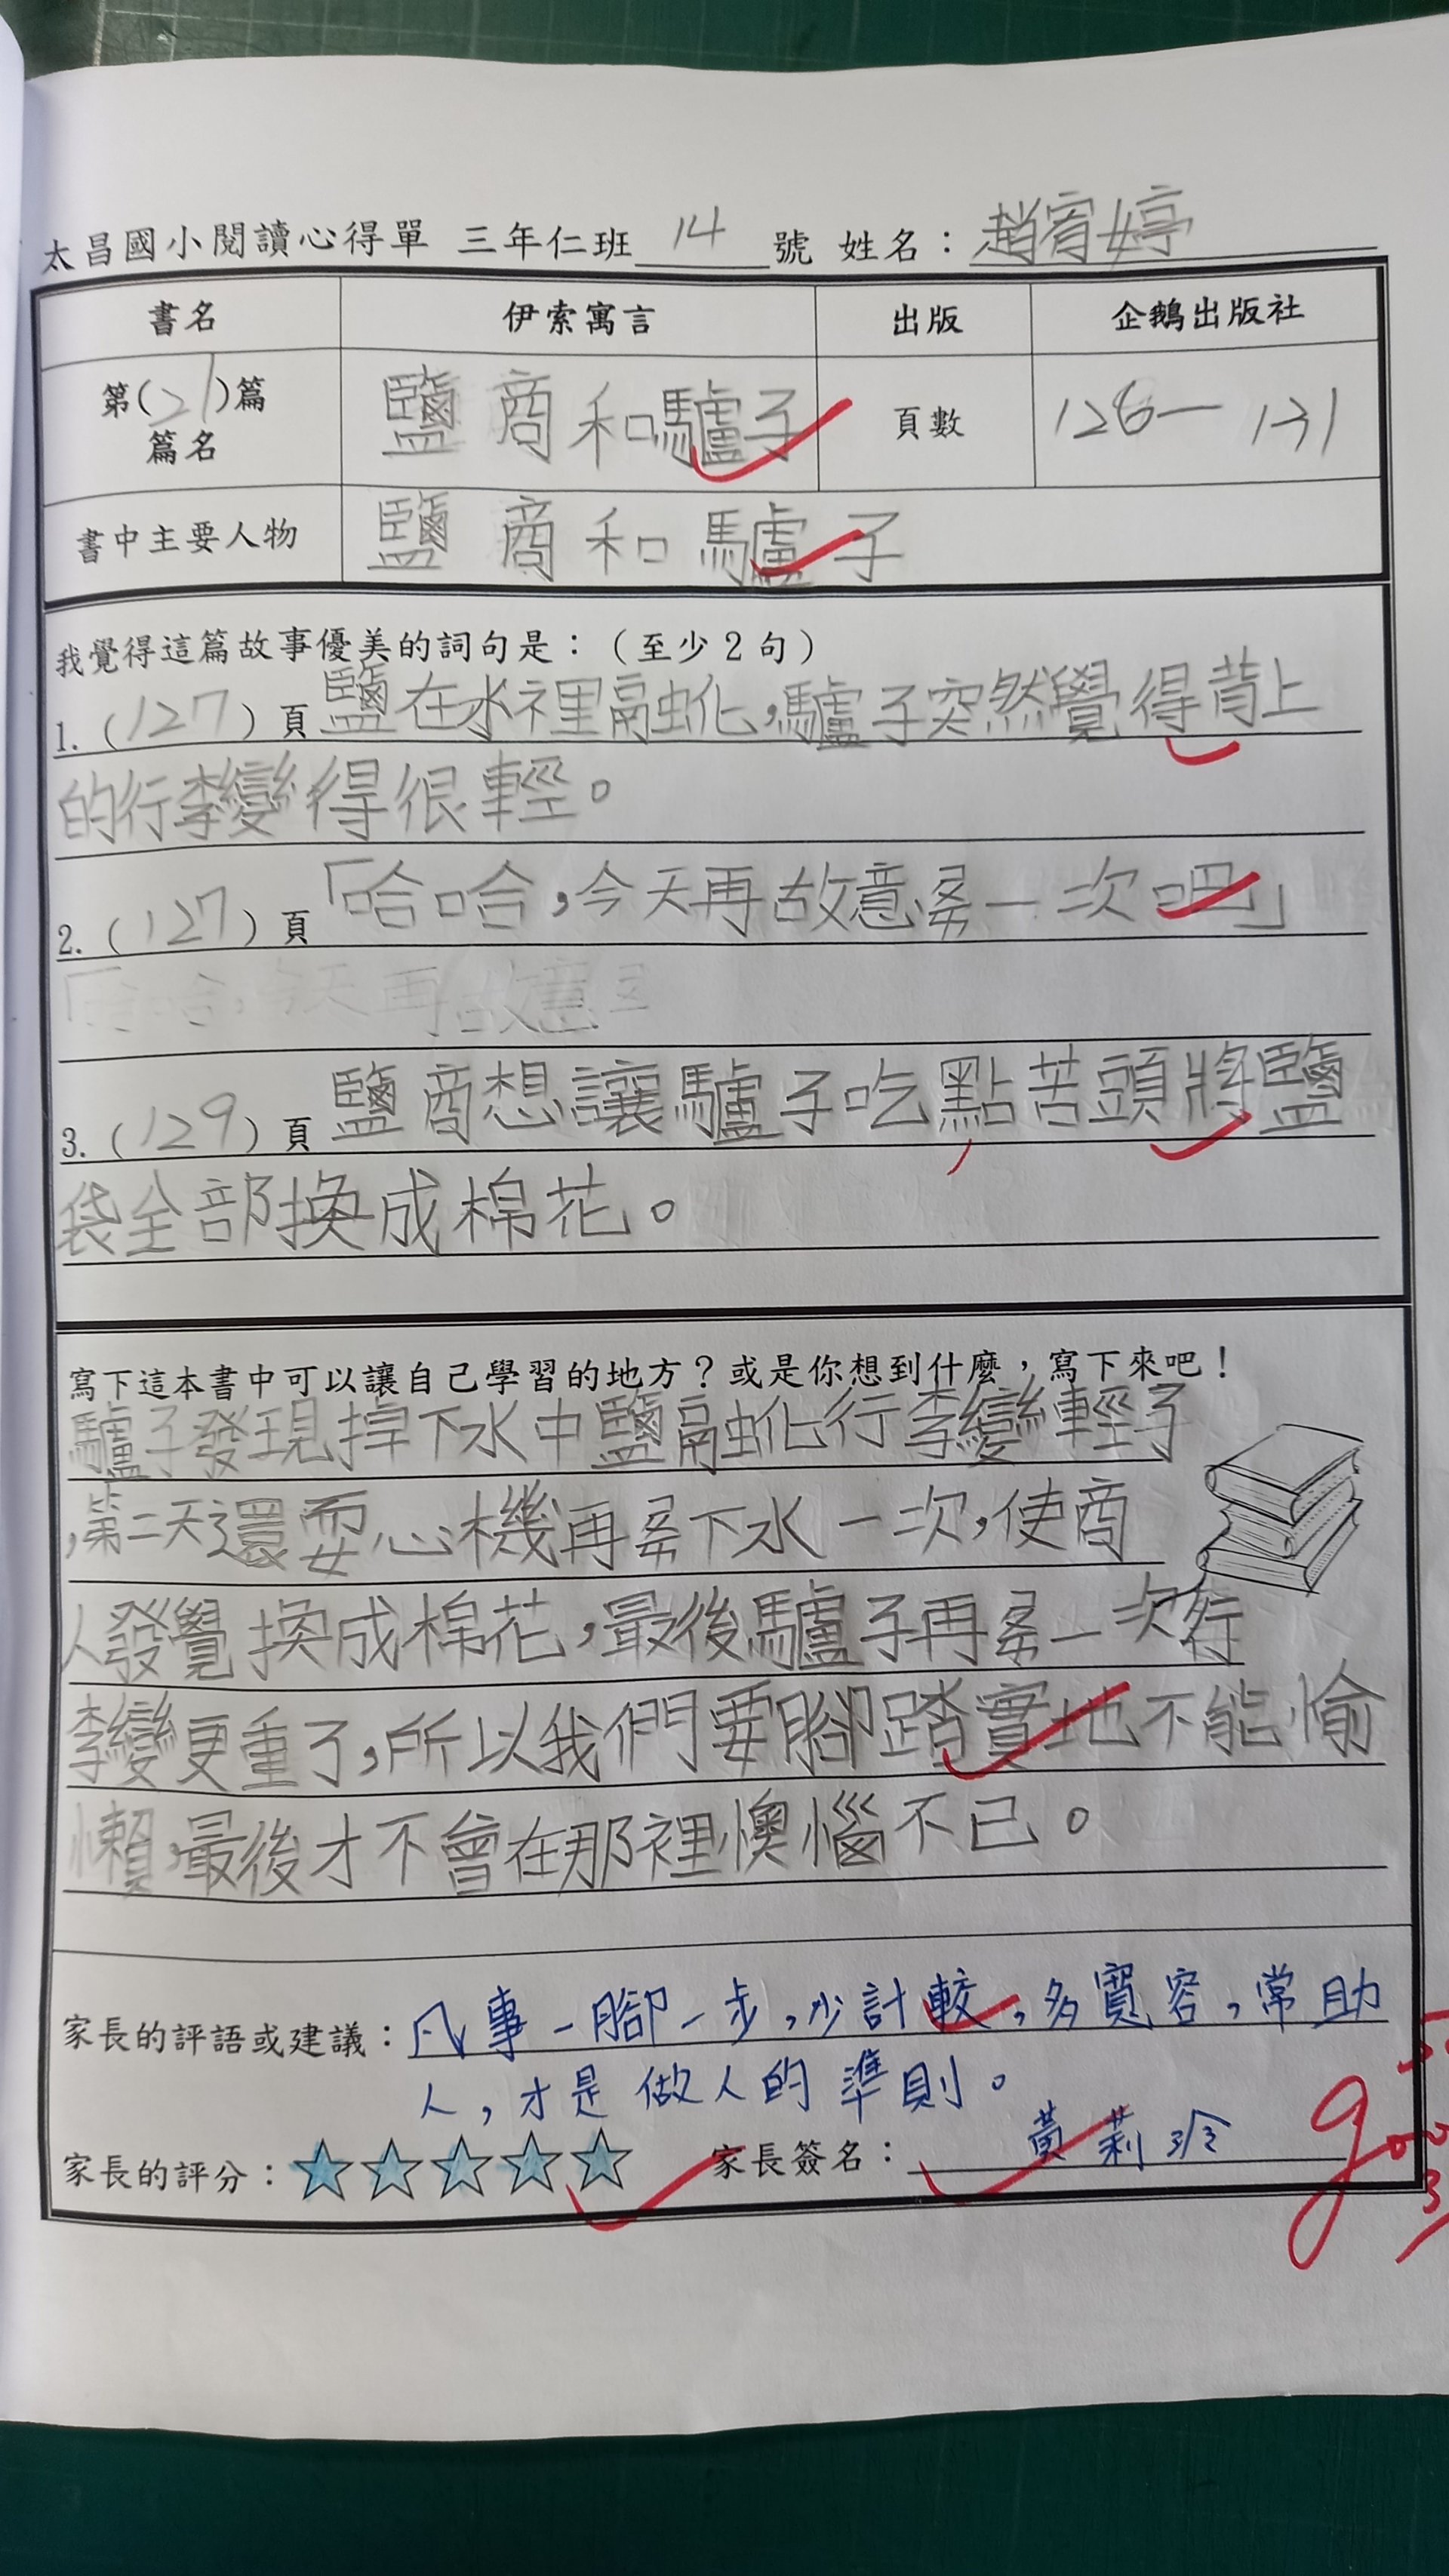 太昌國小閱讀心得單 三年仁班 14 號 姓名：趙宥婷
書名 伊索寓言 出版 企鵝出版社
第(21)篇 篇名 鹽商和驢子 頁數 126—131
書中主要人物 鹽商和驢子
我覺得這篇故事優美的詞句是：（至少2句）
1.（127）頁 鹽在水裡融化，驢子突然覺得背上
的行李變得很輕。
2.（127）頁「哈哈，今天再故意桊一次吧」
「哈哈，今天再故意
3.（129）頁 鹽商想讓驢子吃點苦頭將鹽
袋全部換成棉花。
寫下這本書中可以讓自己學習的地方？或是你想到什麼，寫下來吧！
驢子發現掉下水中鹽融化行李變輕了
，第二天還耍心機再下水一次，使商
人發覺換成棉花，最後驢子再一次行
李變更重了，所以我們要腳踏實地不能愉
懶，最後才不會在那裡懊惱不已。
家長的評語或建議：凡事一腳一步，少計較，多寬容，常助
人，才是做人的準則。
家長的評分：☆☆☆☆☆ 家長簽名：黃莉玲
good